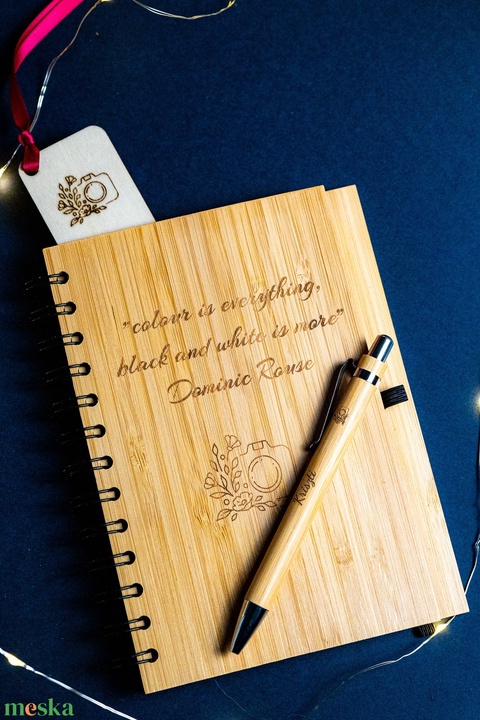 "colour is everything,
black and white is more"
Dominic Rouse
Kriszti
meska